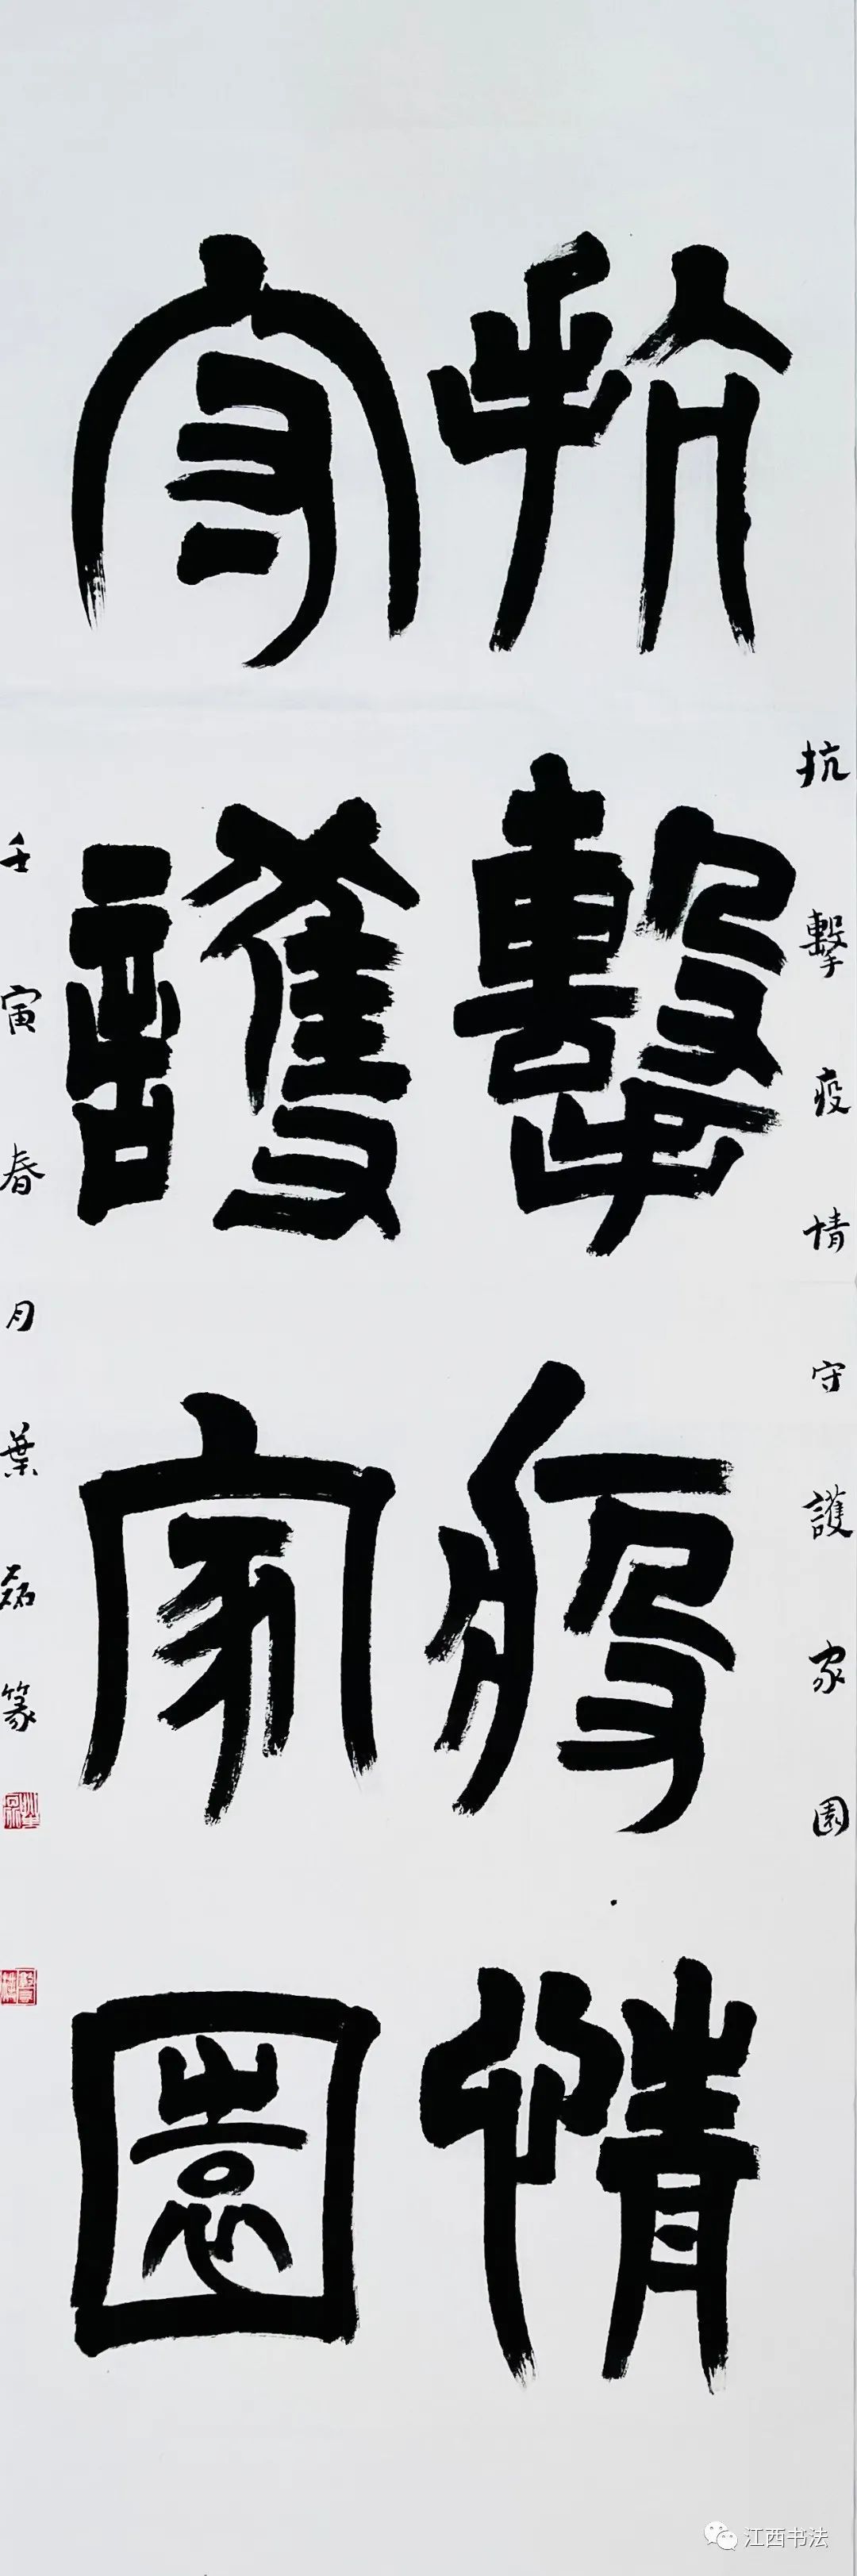 抗擊疫情守護家園
抗擊疫情
守護家園
壬寅春月葉磊篆
江西书法